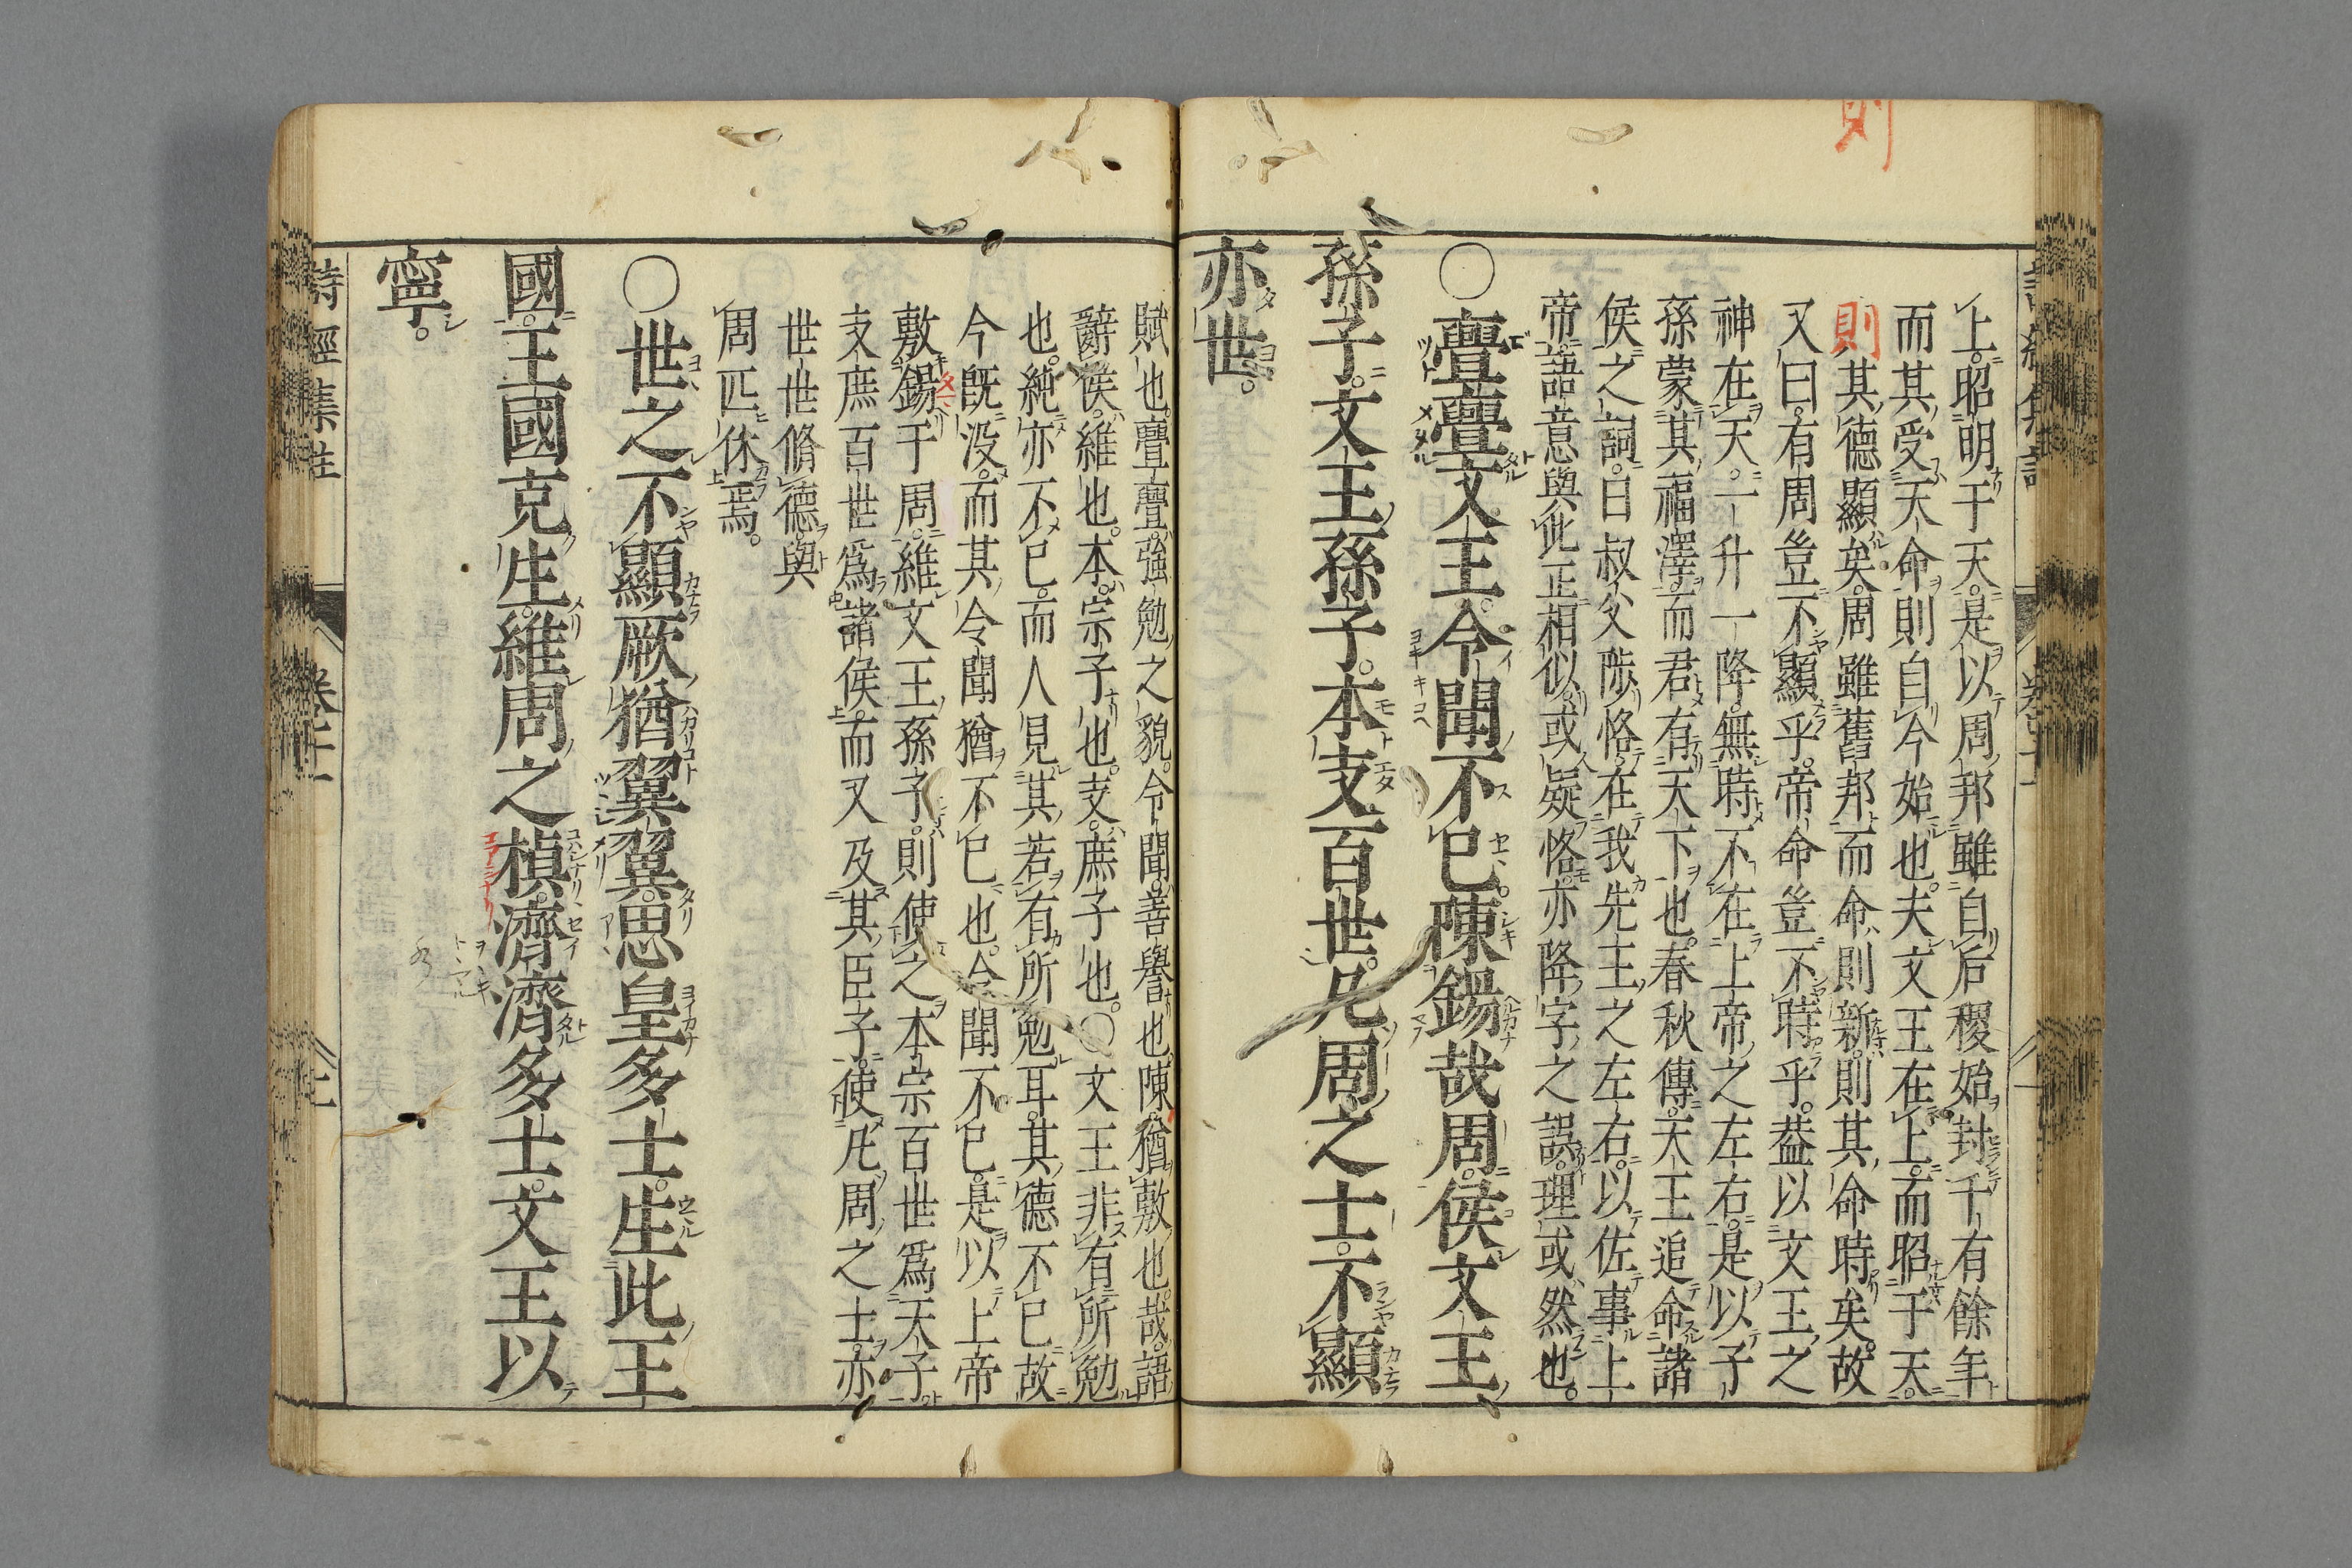 則
上。昭明于天。是以周邦雖自后稷始封千有餘年
而其受天命則自今始也。夫文王在上。而昭于天。
則其德顯矣。周雖舊邦而命則新。則其命時矣。故
又曰。有周豈不顯乎。帝命豈不時乎。蓋以文王之
神在天。一升一降。無時不在上帝之左右。是以子
孫蒙其福澤。而君有天下也。春秋傳。天王追命諸
侯之詞。曰叔父陟恪在我先王之左右。以佐事上
帝。語意與此正相似。或疑恪亦降字之誤。理或然也。
○亹亹文王。令聞不已。陳錫哉周。侯文王
孫子。文王孫子。本支百世。凡周之士。不顯
亦世。
賦也。亹亹。強勉之貌。令聞。善譽也。陳猶敷也。哉。語
辭。侯。維也。本。宗子也。支。庶子也。○文王非有所勉
也。純亦不已。而人見其若有所勉耳。其德不已故
今既没。而其令聞猶不已也。令聞不已。是以上帝
敷錫于周。維文王孫子。則使之本宗百世爲天子。
支庶百世爲諸侯。而又及其臣子。使凡周之士。亦
世世脩德。與
周匹休焉。
○世之不顯。厥猶翼翼。思皇多士。生此王
國。王國克生。維周之楨。濟濟多士。文王以
寧。
詩經集註 卷十一 二